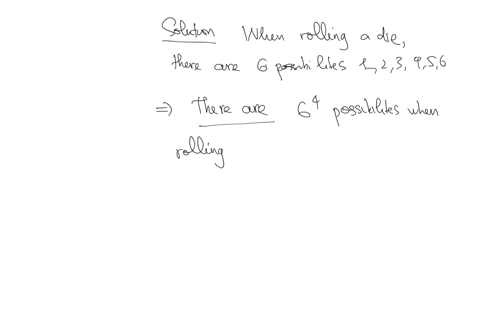 Solution When rolling a die,
there are 6 possibilites 1, 2, 3, 4, 5, 6
⇒ There are 6⁴ possibilites when
rolling